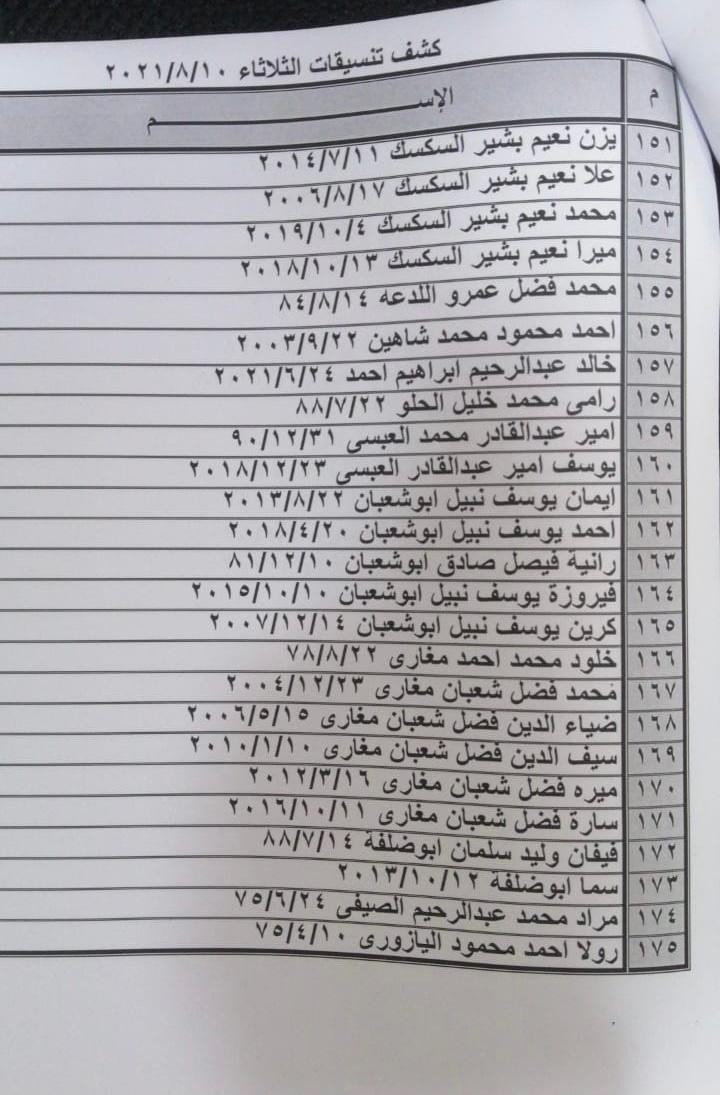 كشف تنسيقات الثلاثاء ٢٠٢١/٨/١٠
م الإســـــــــــم
١٥١ يزن نعيم بشير السكسك ٢٠١٤/٧/١١
١٥٢ علا نعيم بشير السكسك ٢٠٠٦/٨/١٧
١٥٣ محمد نعيم بشير السكسك ٢٠١٩/١٠/٤
١٥٤ ميرا نعيم بشير السكسك ٢٠١٨/١٠/١٣
١٥٥ محمد فضل عمرو اللدعه ٨٤/٨/١٤
١٥٦ احمد محمود محمد شاهين ٢٠٠٣/٩/٢٢
١٥٧ خالد عبدالرحيم ابراهيم احمد ٢٠٢١/٦/٢٤
١٥٨ رامى محمد خليل الحلو ٨٨/٧/٢٢
١٥٩ امير عبدالقادر محمد العبسى ٩٠/١٢/٣١
١٦٠ يوسف امير عبدالقادر العبسى ٢٠١٨/١٢/٢٣
١٦١ ايمان يوسف نبيل ابوشعبان ٢٠١٣/٨/٢٢
١٦٢ احمد يوسف نبيل ابوشعبان ٢٠١٨/٤/٢٠
١٦٣ رانية فيصل صادق ابوشعبان ٨١/١٢/١٠
١٦٤ فيروزة يوسف نبيل ابوشعبان ٢٠١٥/١٠/١٠
١٦٥ كرين يوسف نبيل ابوشعبان ٢٠٠٧/١٢/١٤
١٦٦ خلود محمد احمد مغارى ٧٨/٨/٢٢
١٦٧ محمد فضل شعبان مغارى ٢٠٠٤/١٢/٢٣
١٦٨ ضياء الدين فضل شعبان مغارى ٢٠٠٦/٥/١٥
١٦٩ سيف الدين فضل شعبان مغارى ٢٠١٠/١/١٠
١٧٠ ميره فضل شعبان مغارى ٢٠١٢/٣/١٦
١٧١ سارة فضل شعبان مغارى ٢٠١٦/١٠/١١
١٧٢ فيفان وليد سلمان ابوضلفة ٨٨/٧/١٤
١٧٣ سما ابوضلفة ٢٠١٣/١٠/١٢
١٧٤ مراد محمد عبدالرحيم الصيفى ٧٥/٦/٢٤
١٧٥ رولا احمد محمود اليازورى ٧٥/٤/١٠